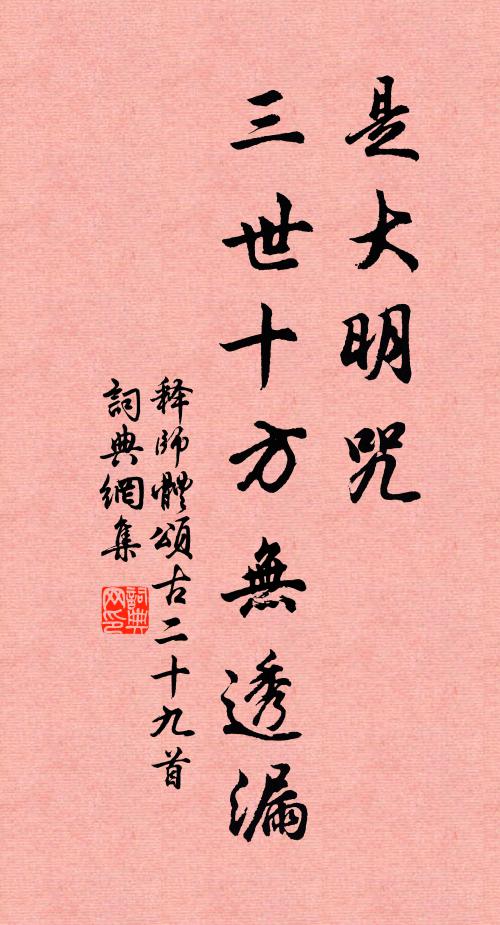 是大明咒
三世十方無透漏
释師體頌古二十九首
詞典網集
詞典網印